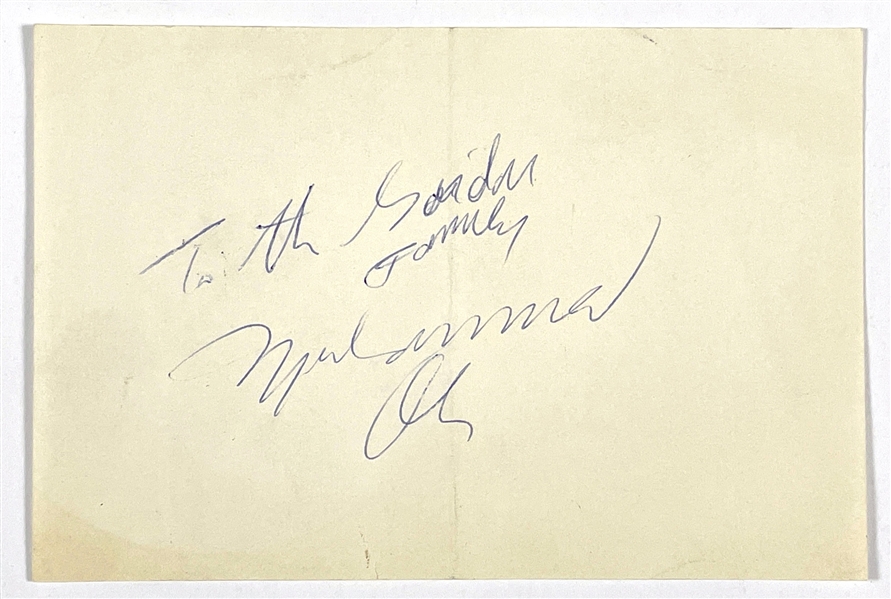 To the Gordon
Family
Muhammad
Ali